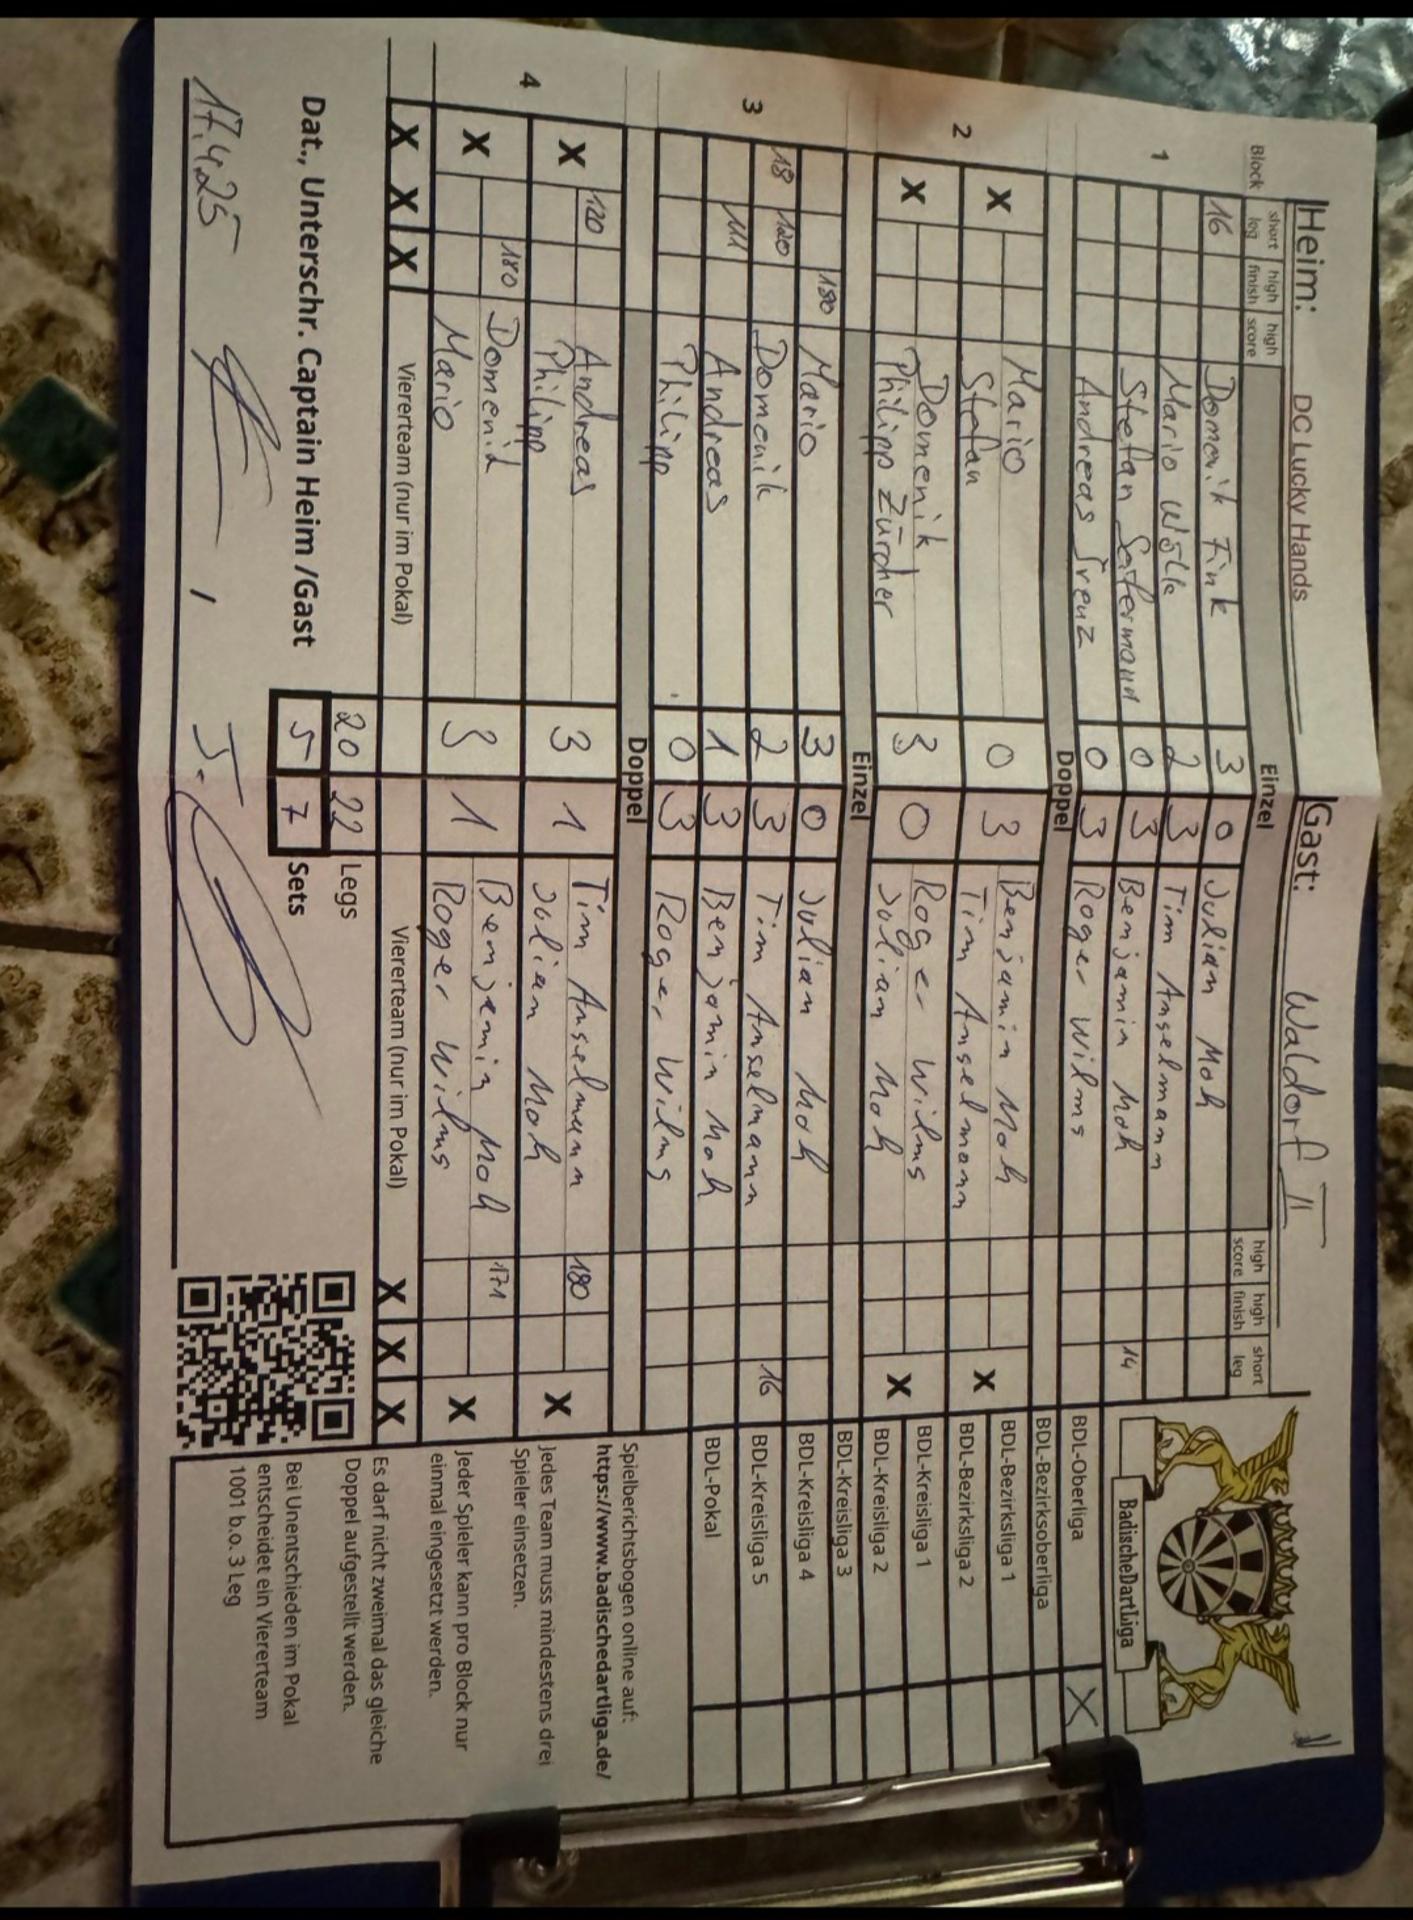 Heim: DC Lucky Hands Gast: Waldorf II
Block short leg high finish high score Einzel high score high finish short leg
1
16 Domenik Fink 3 0 Julian Moh
Mario Wölle 2 3 Tim Anselmann
Stefan 0 3 Benjamin Moh 14
Andreas 0 3 Roger Wilms
Doppel
2
X Mario 0 3 Benjamin Moh X
Stefan Tim Anselmann
X Domenik 3 0 Roger Wilms X
Philipp Zürcher Julian Moh
Einzel
3
180 Mario 3 0 Julian Moh
18 120 Domenik 2 3 Tim Anselmann 16
111 Andreas 1 3 Benjamin Moh
Philipp 0 3 Roger Wilms
Doppel
4
X 120 Andreas 3 1 Tim Anselmann 180 X
Philipp Julian Moh
X 180 Domenik 3 1 Benjamin Moh 171 X
Mario Roger Wilms
X X X Vierterteam (nur im Pokal) Viererteam (nur im Pokal) X X X
20 22 Legs
Dat., Unterschr. Captain Heim /Gast 5 7 Sets
17.4.25
BadischeDartLiga
BDL-Oberliga X
BDL-Bezirksoberliga
BDL-Bezirksliga 1
BDL-Bezirksliga 2
BDL-Kreisliga 1
BDL-Kreisliga 2
BDL-Kreisliga 3
BDL-Kreisliga 4
BDL-Kreisliga 5
BDL-Pokal
Spielberichtsbogen online auf:
https://www.badischedartliga.de/
Jedes Team muss mindestens drei
Spieler einsetzen.
Jeder Spieler kann pro Block nur
einmal eingesetzt werden.
Es darf nicht zweimal das gleiche
Doppel aufgestellt werden.
Bei Unentschieden im Pokal
entscheidet ein Viererteam
1001 b.o. 3 Leg